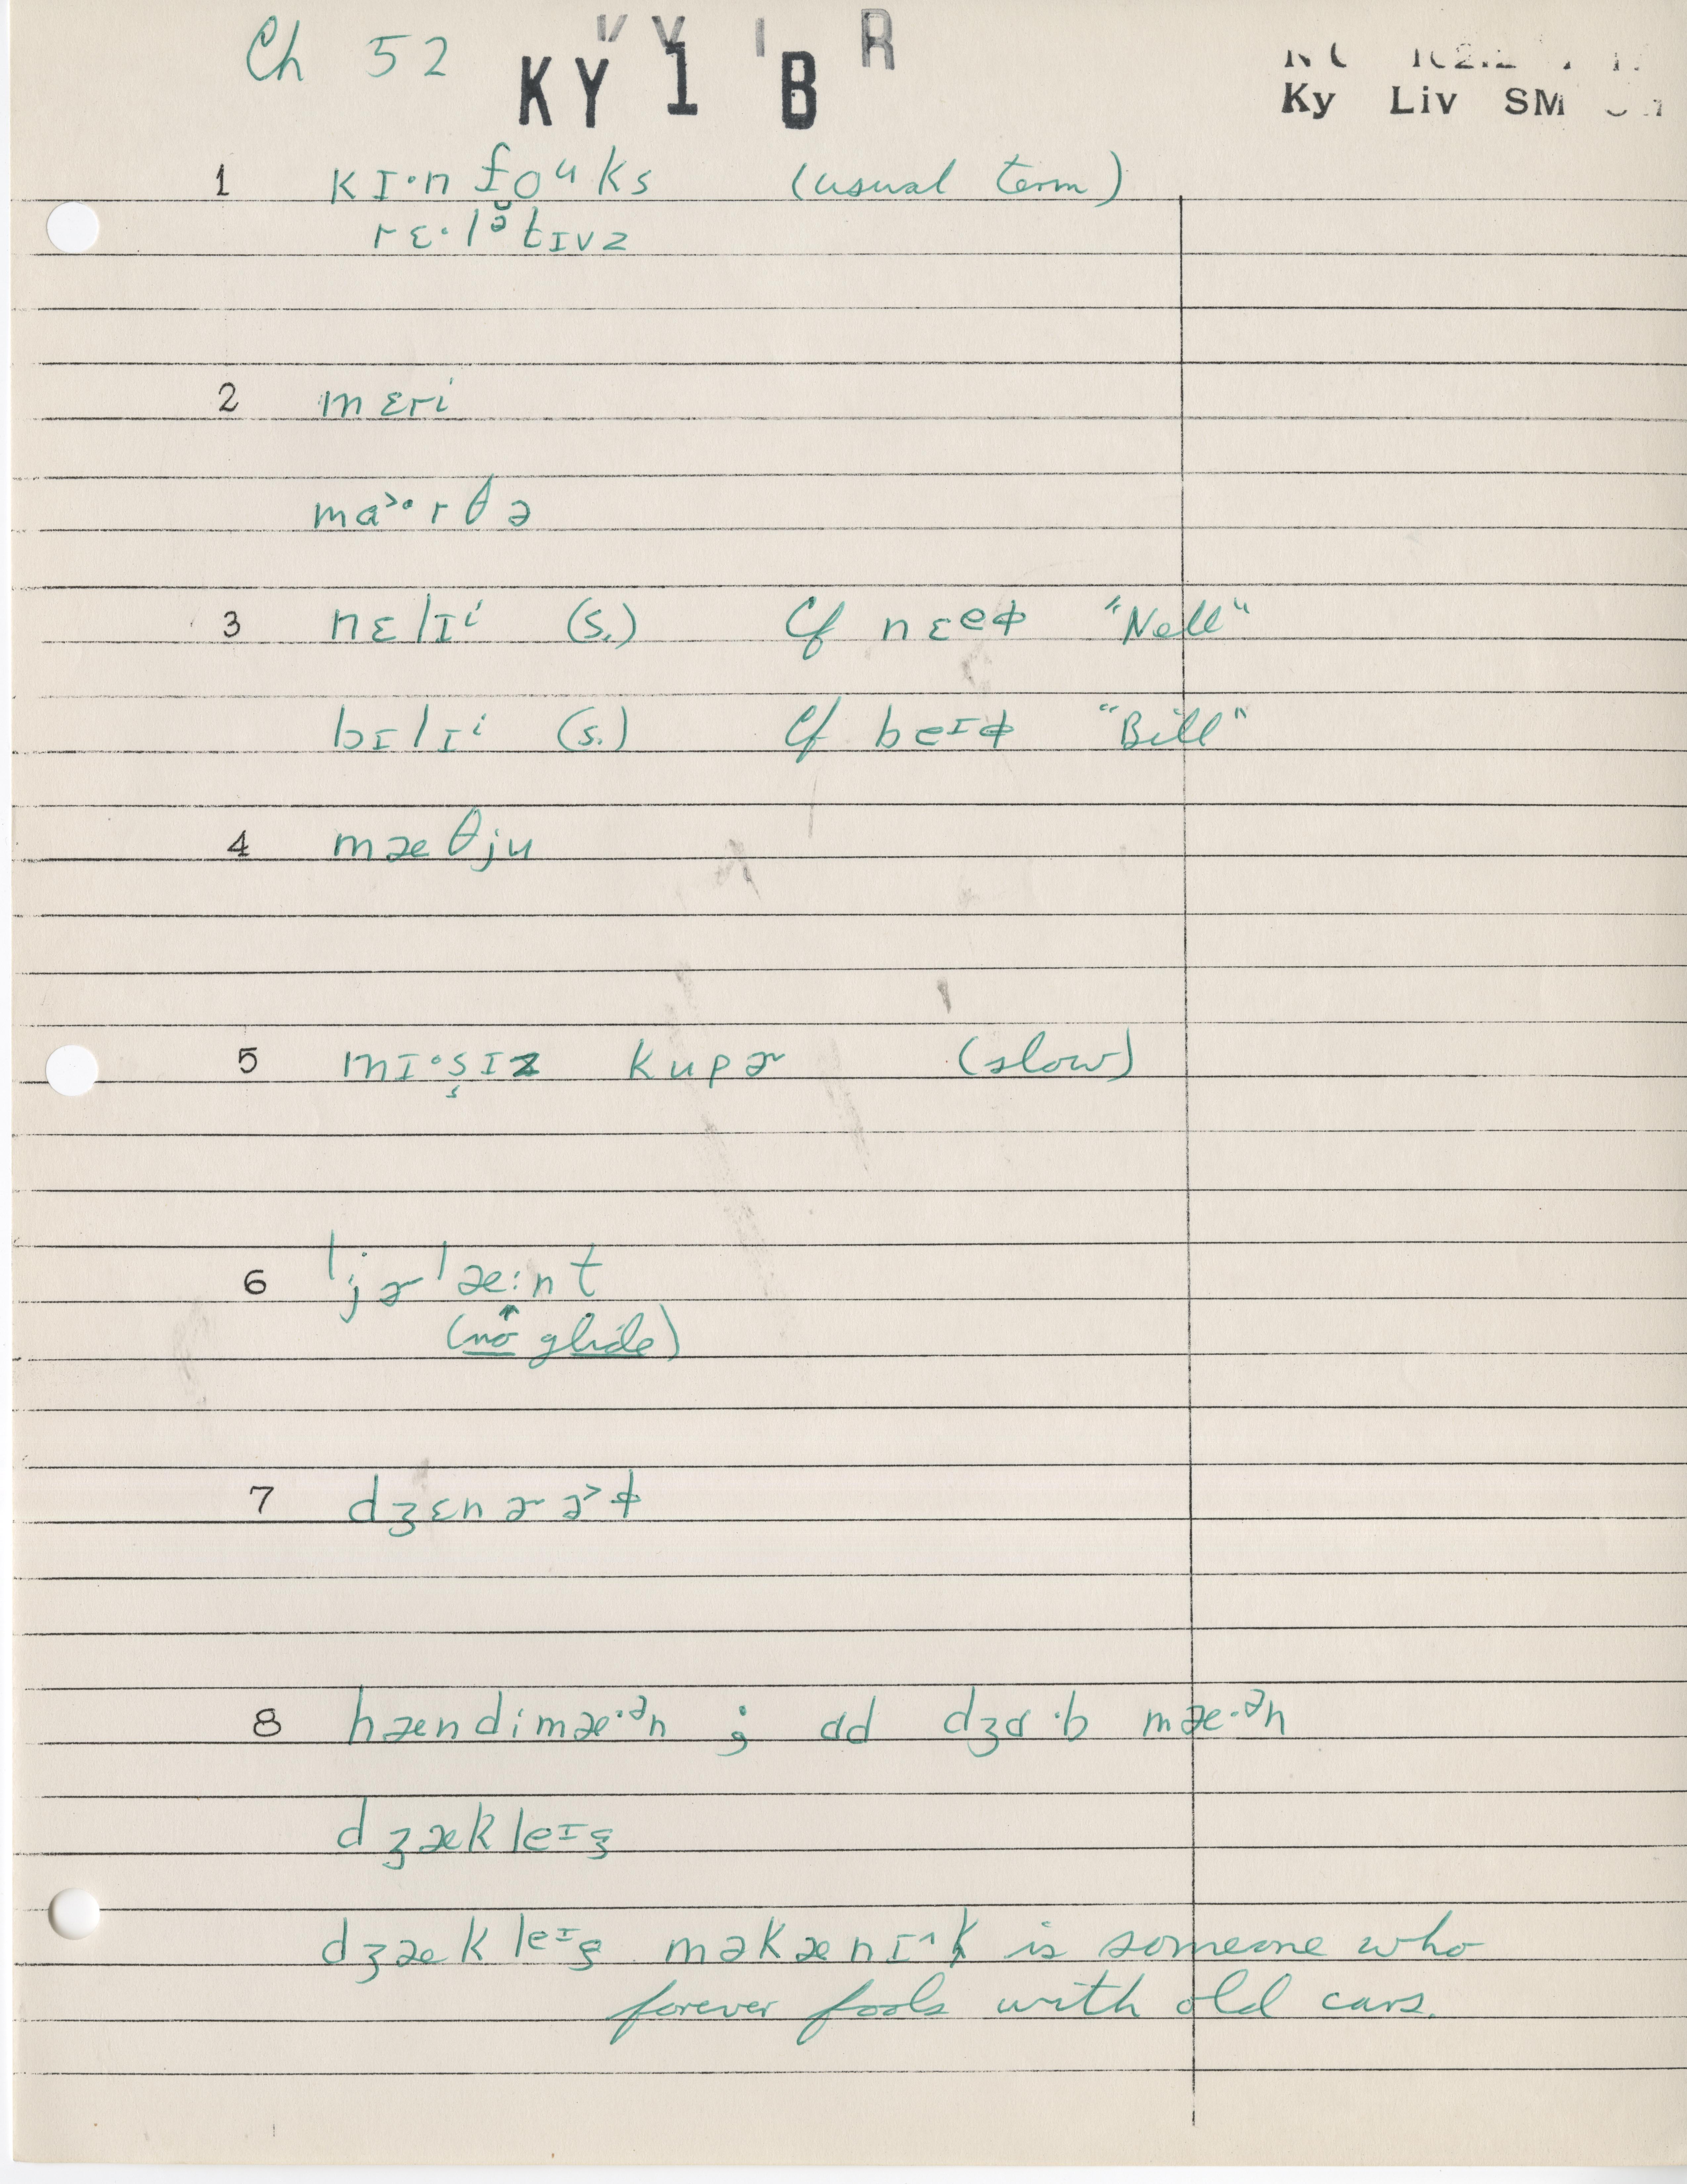 Ch 52 KY 1 B R
Ky Liv SM
1 kɪ·n foᵘks (usual term)
rɛ·lə̆tɪvz
2 mɛri
mɑ˃·rθə
3 nɛlɪⁱ (s.) Cf nɛᵉɫ "Nell"
bɪlɪⁱ (s.) Cf beᶦɫ "Bill"
4 mæθju
5 mɪ·s̬ɪz kupɚ (slow)
6 ˈjɚˈæ:nt
(no glide)
7 dʒɛnɚə˃ɫ
8 hændimæ·ᵊn ; ɑd dʒɑ·b mæ·ᵊn
dʒækleᶦg
dʒækleᶦg məkænɪ^k is someone who
forever fools with old cars.